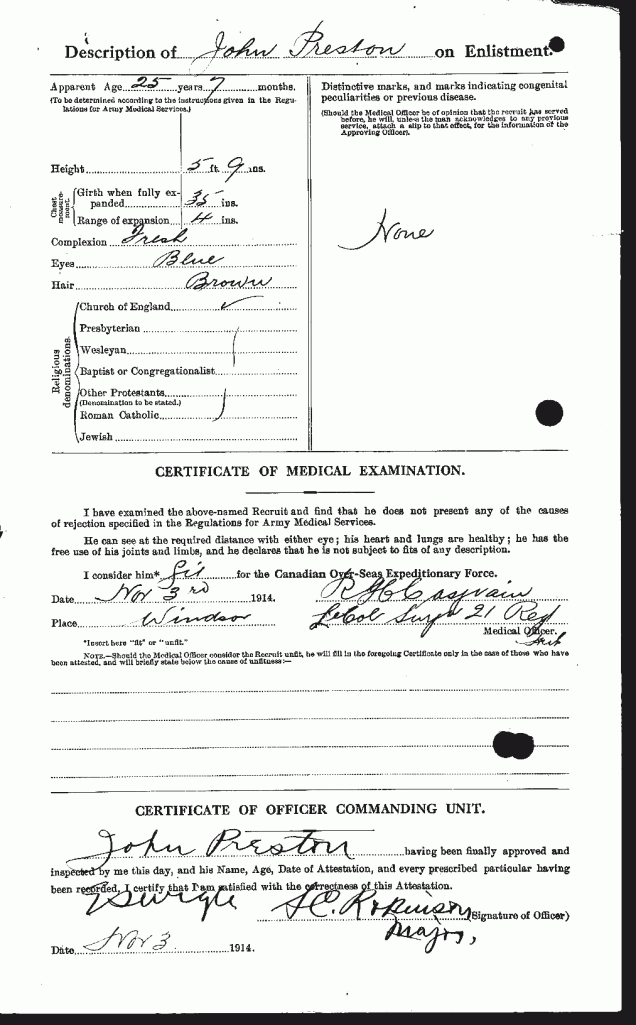 Description of John Preston on Enlistment.
Apparent Age 25 years 7 months.
(To be determined according to the instructions given in the Regu-
lations for Army Medical Services.)
Height 5 ft. 9 ins.
Chest measure-ment.
Girth when fully ex-
panded 35 ins.
Range of expansion 4 ins.
Complexion Fresh
Eyes Blue
Hair Brown
Religious denominations.
Church of England ✓
Presbyterian
Wesleyan
Baptist or Congregationalist
Other Protestants
(Denomination to be stated.)
Roman Catholic
Jewish
Distinctive marks, and marks indicating congenital
peculiarities or previous disease.
(Should the Medical Officer be of opinion that the recruit has served
before, he will, unless the man acknowledges to any previous
service, attach a slip to that effect, for the information of the
Approving Officer).
None
CERTIFICATE OF MEDICAL EXAMINATION.
I have examined the above-named Recruit and find that he does not present any of the causes
of rejection specified in the Regulations for Army Medical Services.
He can see at the required distance with either eye; his heart and lungs are healthy; he has the
free use of his joints and limbs, and he declares that he is not subject to fits of any description.
I consider him* fit for the Canadian Over-Seas Expeditionary Force.
Date Nov 3rd 1914.
Place Windsor
Lt Col Surg 21 Reg
Medical Officer.
*Insert here "fit" or "unfit."
NOTE.—Should the Medical Officer consider the Recruit unfit, he will fill in the foregoing Certificate only in the case of those who have
been attested, and will briefly state below the cause of unfitness:—
CERTIFICATE OF OFFICER COMMANDING UNIT.
John Preston having been finally approved and
inspected by me this day, and his Name, Age, Date of Attestation, and every prescribed particular having
been recorded, I certify that I am satisfied with the correctness of this Attestation.
S C Robinson (Signature of Officer)
Major,
Date Nov 3 1914.